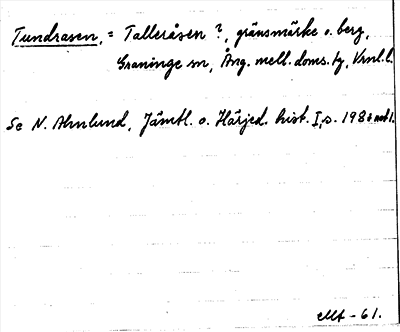 Tundrasen, = Talleråsen ?, gränsmärke o. berg,
Graninge sn, Ång. mell. doms. tg, Vrnl. l.
Se N. Ahnlund, Jämtl. o. Härjed. hist. I, s. 198 o not 1.
-61.